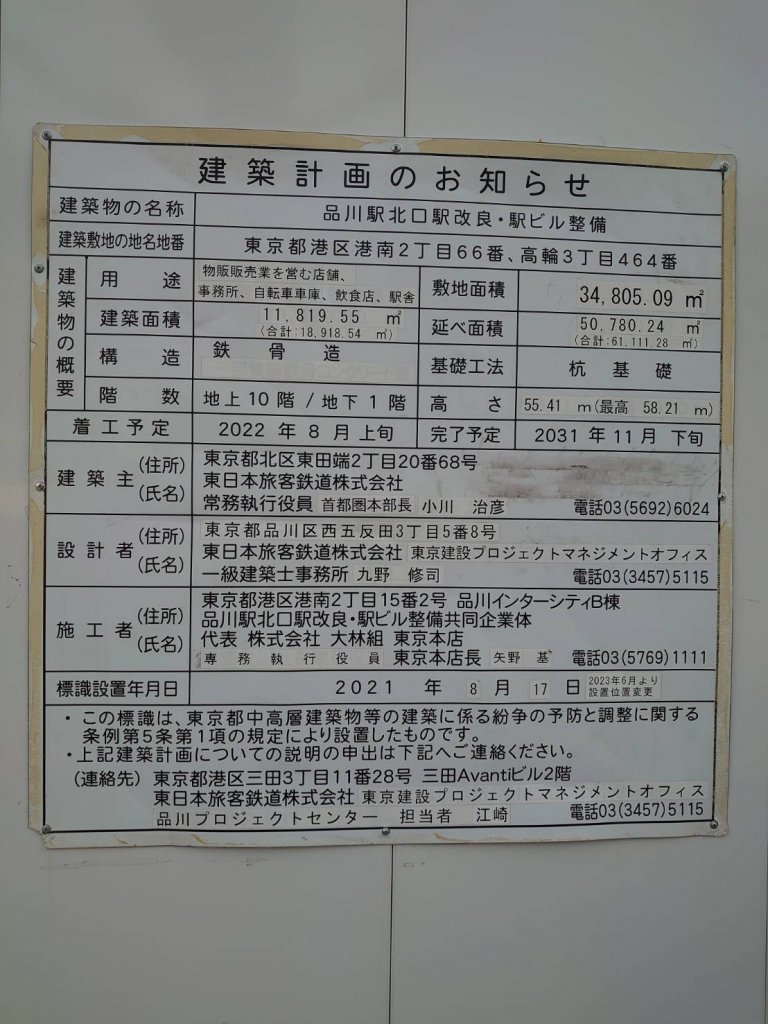 建築計画のお知らせ
建築物の名称 品川駅北口駅改良・駅ビル整備
建築敷地の地名地番 東京都港区港南2丁目66番、高輪3丁目464番
建築物の概要
用途 物販販売業を営む店舗、
事務所、自転車車庫、飲食店、駅舎
敷地面積 34,805.09 ㎡
建築面積 11,819.55 ㎡
(合計:18,918.54 ㎡)
延べ面積 50,780.24 ㎡
(合計:61,111.28 ㎡)
構造 鉄骨造 基礎工法 杭基礎
階数 地上10階/地下1階 高さ 55.41 m(最高 58.21 m)
着工予定 2022年8月上旬 完了予定 2031年11月下旬
建築主(住所)(氏名)
東京都北区東田端2丁目20番68号
東日本旅客鉄道株式会社
常務執行役員 首都圏本部長 小川 治彦 電話03(5692)6024
設計者(住所)(氏名)
東京都品川区西五反田3丁目5番8号
東日本旅客鉄道株式会社 東京建設プロジェクトマネジメントオフィス
一級建築士事務所 九野 修司 電話03(3457)5115
施工者(住所)(氏名)
東京都港区港南2丁目15番2号 品川インターシティB棟
品川駅北口駅改良・駅ビル整備共同企業体
代表 株式会社 大林組 東京本店
専務執行役員 東京本店長 矢野 基 電話03(5769)1111
標識設置年月日 2021年8月17日 2023年6月より
設置位置変更
・この標識は、東京都中高層建築物等の建築に係る紛争の予防と調整に関する
条例第5条第1項の規定により設置したものです。
・上記建築計画についての説明の申出は下記へご連絡ください。
(連絡先) 東京都港区三田3丁目11番28号 三田Avantiビル2階
東日本旅客鉄道株式会社 東京建設プロジェクトマネジメントオフィス
品川プロジェクトセンター 担当者 江崎 電話03(3457)5115